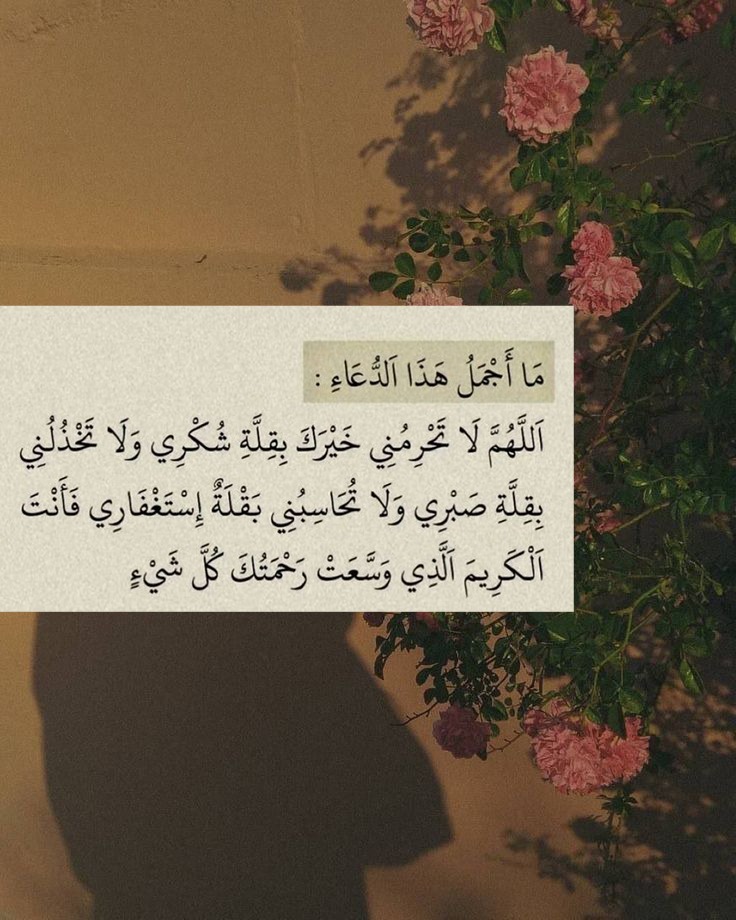 مَا أَجْمَلُ هَذَا اَلدُّعَاءِ :
اَللَّهُمَّ لَا تَحْرِمُنِي خَيْرَكَ بِقِلَّةِ شُكْرِي وَلَا تَخْذُلُنِي
بِقِلَّةِ صَبْرِي وَلَا تُحَاسِبُنِي بَقْلَةٌ إِسْتَغْفَارِي فَأَنْتَ
اَلْكَرِيمَ اَلَّذِي وَسَّعَتْ رَحْمَتُكَ كُلَّ شَيْءٍ